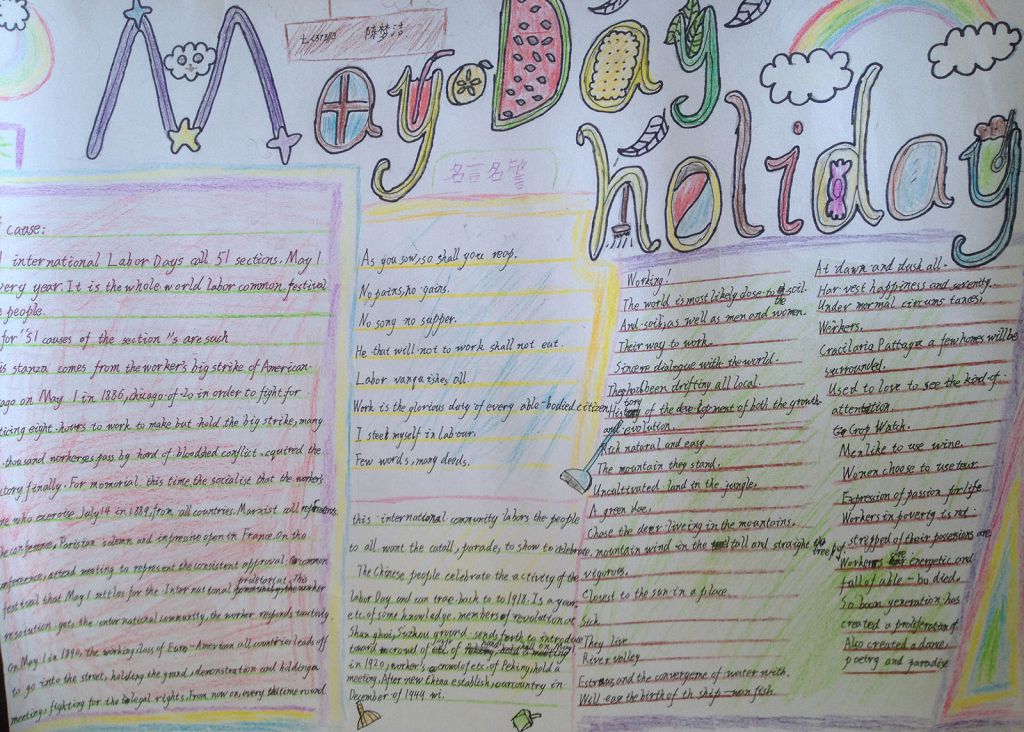 May Day
holiday
陈梦洁
名言名警
cause:
international Labor Days call 51 sections. May 1
very year. It is the whole world labor common festival
people.
for "51 causes of the section "s are such
is stanza comes from the worker's big strike of American
ago on May 1 in 1886, chicago of 20 in order to fight for
ticing eight-hours to work to make but hold the big strike, many
thousand workers pass by hard of bloodshed conflict
finally. For momorial this time the socialise that the workers
who exercise July 14 in 1889, from all countries. Marxist call
conference, Parisian solemn and impressive open in France. On tha
conference, attend meeting to represent the consistent approval common
festival that May 1 settles for the International proletariat. This
resolution gets the international community, the worker responds
On May 1 in 1890, the working class of Euro-American all countries leads off
to go into the street, holding the grand, demonstration and holding a
meeting, fighting for the legal rights. From now on, every time round
As you sow, so shall you reap.
No pains, no gains.
No song no supper.
He that will not to work shall not eat.
Labor vanquishes all.
Work is the glorious day of every able-bodied citizen.
I steel myself in labour.
Few words, many deeds.
this international community labors the people
to all want the catall, parade, to show to celebrate.
The Chinese people celebrate the activity of the
labor Day and can trae back to to 1918. Is a year,
etc. of some knowledge members of revolution at
Shanghai, Suzhou ground sends forth to introduce
toward
in 1920, worker's etc. of Peking, hold a
meeting. After new China establish, our country in
December of 1949,
Working!
The world is most likely close to the soil.
And soil, as well as men and women.
Their way to work.
Sincere dialogue with the world.
been drifting all local.
History of the development of both the growth
and evolution.
Rich natural and easy
The mountain they stand.
Uncultivated land in the jungle.
A green
Chase the deer liveing in the mountains.
mountain wind on the tall and straight tree
vigorous.
Closest to the sun in a place.
Such
They live
River valley
and the convergence of water with.
Will ease the birth of th ship
At dawn and dusk all.
Harvest happiness and serenity.
Under normal circumstances,
Workers.
Cracilaria Pattaya a few homes will be
surrounded.
Used to love to see the kind of
attention.
Crop Watch.
Men like to use wine.
Women choose to use
Expression of passion for life.
Workers in poverty is not
stripped of their possessions are
Workers are energetic and
full of able-bodied.
So boom generation has
created a proliferation of
Also created a
poetry and paradise